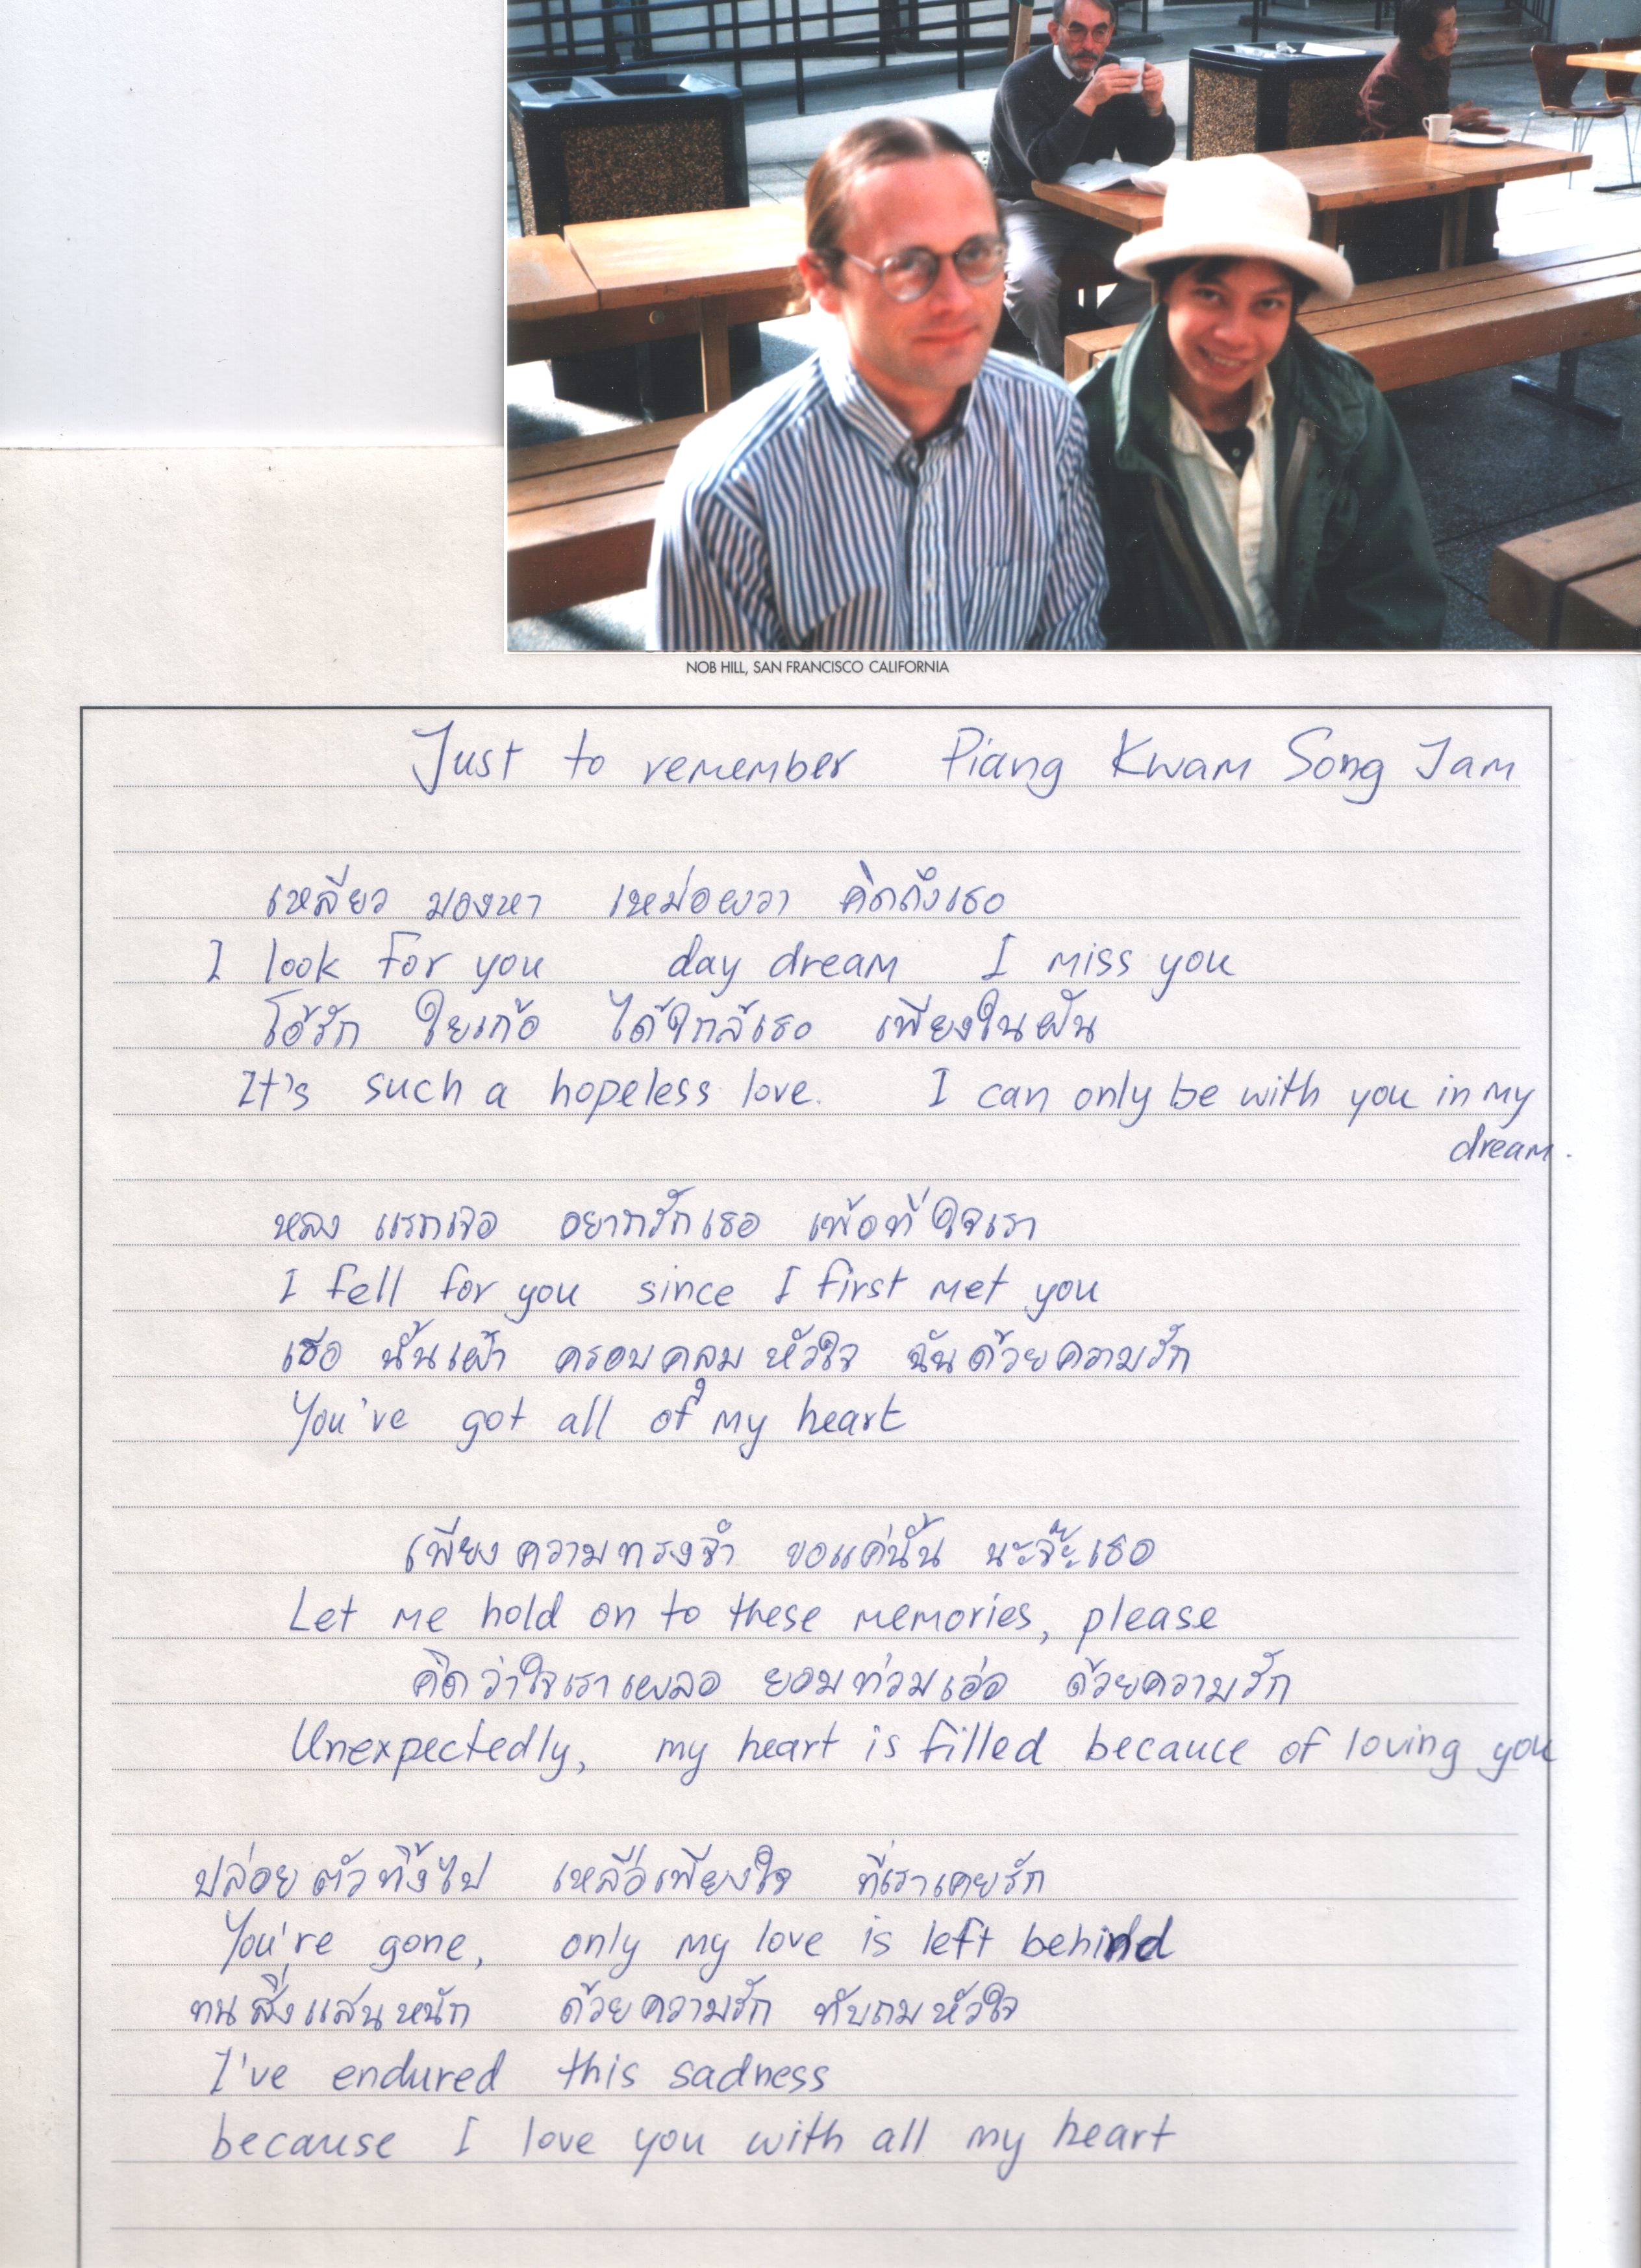 NOB HILL, SAN FRANCISCO CALIFORNIA
Just to remember Piang Kwam Song Jam
เหลียว มองหา เหม่อผวา คิดถึงเธอ
I look for you day dream I miss you
โอ้รัก ใยเก้อ ได้ใกล้เธอ เพียงในฝัน
It's such a hopeless love. I can only be with you in my
dream.
หลง แรกเจอ อยากรักเธอ เพ้อที่ใจเรา
I fell for you since I first met you
เธอ นั้นเฝ้า ครอบคลุม หัวใจ ฉันด้วยความรัก
You've got all of my heart
เพียงความทรงจำ ขอแค่นั้น นะจ๊ะเธอ
Let me hold on to these memories, please
คิดว่าใจเราเผลอ ยอมท่วมเอ่อ ด้วยความรัก
Unexpectedly, my heart is filled becauce of loving you
ปล่อยตัวทิ้งไป เหลือเพียงใจ ที่เราเคยรัก
You're gone, only my love is left behind
ทนสิ่งแสนหนัก ด้วยความรัก ทับถมหัวใจ
I've endured this sadness
because I love you with all my heart